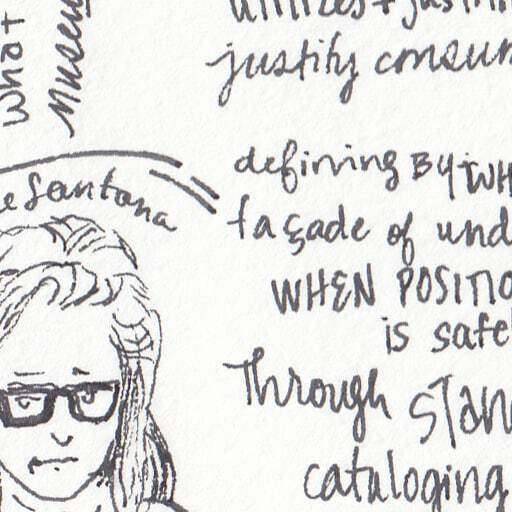 What
Museu
utilizes + justifi
justify consum
defining BY WH
façade of und
WHEN POSITIO
is safe
Through STAN
cataloging
e Santana